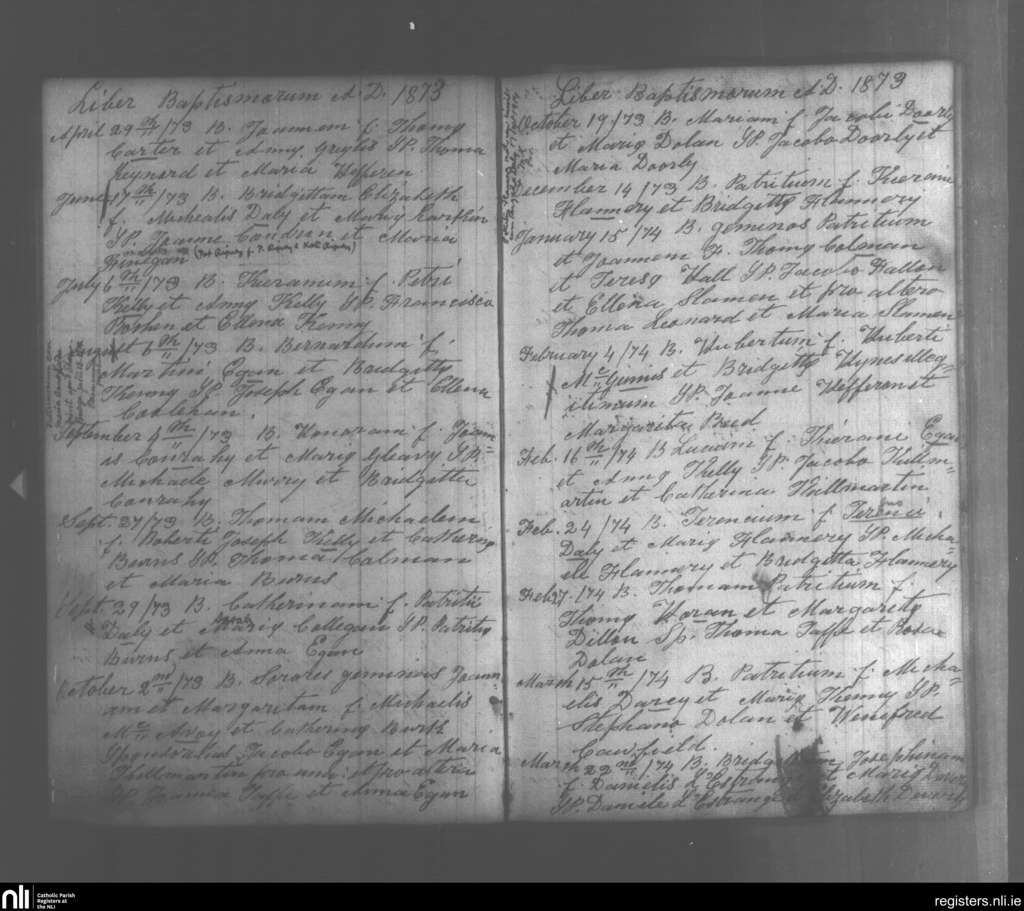 Liber Baptismorum A D. 1873
April 29th/73 B. Joannem f. Thomę
Carter et Annę SP. Thoma
Reynard et Maria Hefferen
June 17th/73 B. Bridgittam Elizabeth
f. Michealis Daly et Marię
SP. Joanne Condren et Maria
Finegan
July 6th/73 B. Kieranum f. Petri
Kelly et Annę Kelly SP. Francisco
et Ellena Kenny
August 6th/73 B. Bernardum f.
Martini Egan et Bridgittę
Kenny SP. Joseph Egan et Ellena
Coblehan.
September 4th/73 B. Honoram f. Joann
is Conrahy et Marię Gleavy SP.
Michaele et Bridgitta
Conrahy
Sept. 27/73 B. Thomam Michaelem
f. Roberti Joseph Kelly et Catherinę
Burns SP. Thoma Colman
et Maria Burns
Sept. 29/73 B. Catherinam f. Patritii
Daly et Marię Collegan SP. Patritio
Burns et Anna Egan
October 2nd/73 B. Sorores geminos Joann
am et Margaritam f. Michaelis
Mc Avoy et Catherinę
Jacobo Egan et Maria
Killmartin pro una: et pro altera
SP. Joanna Taffe et Anna Egan
Liber Baptismorum A D. 1873
October 19/73 B. Mariam f. Jacobi Doorly
et Marię Dolan SP. Jacobo Doorly et
Maria Doorly
December 14/73 B. Patritium f. Kierani
Flannery et Bridgittę Flannery
January 15/74 B. geminos Patritium
et Joannem f. Thomę Colman
et Teresę Hall SP. Jacobo Fallon
et Ellena Slamen et pro altero
Thoma Leonard et Maria Slamen
February 4/74 B. Hubertum f. Huberti
Mc Ginnis et Bridgittę Hynes illeg=
itimum SP. Joanne Hefferon et
Margarita Breed
Feb. 16th/74 B Luciam f. Kierani Egan
et Annę Kelly SP. Jacobo Killm=
artin et Catherina Killmartin
Feb. 24/74 B. Terencium f. Terencii
Daly et Marię Flannery SP. Micha=
ele Flannery et Bridgitta Flannery
Feb 27/74 B. Thomam Patritium f.
Thomę Horan et Margaritę
Dillon Sp. Thoma Taffe et Rosa
Dolan
March 15th/74 B. Patritium f. Micha=
elis Darcy et Marię Kenny SP.
Stephano Dolan et Winefred
Cawfield.
March 22nd/74 B. Josephinam
f. Danielis L'Estrange et Marię
SP. Daniele L'Estrange et Elizabeth
nli
Catholic Parish
Registers at
the NLI
registers.nli.ie